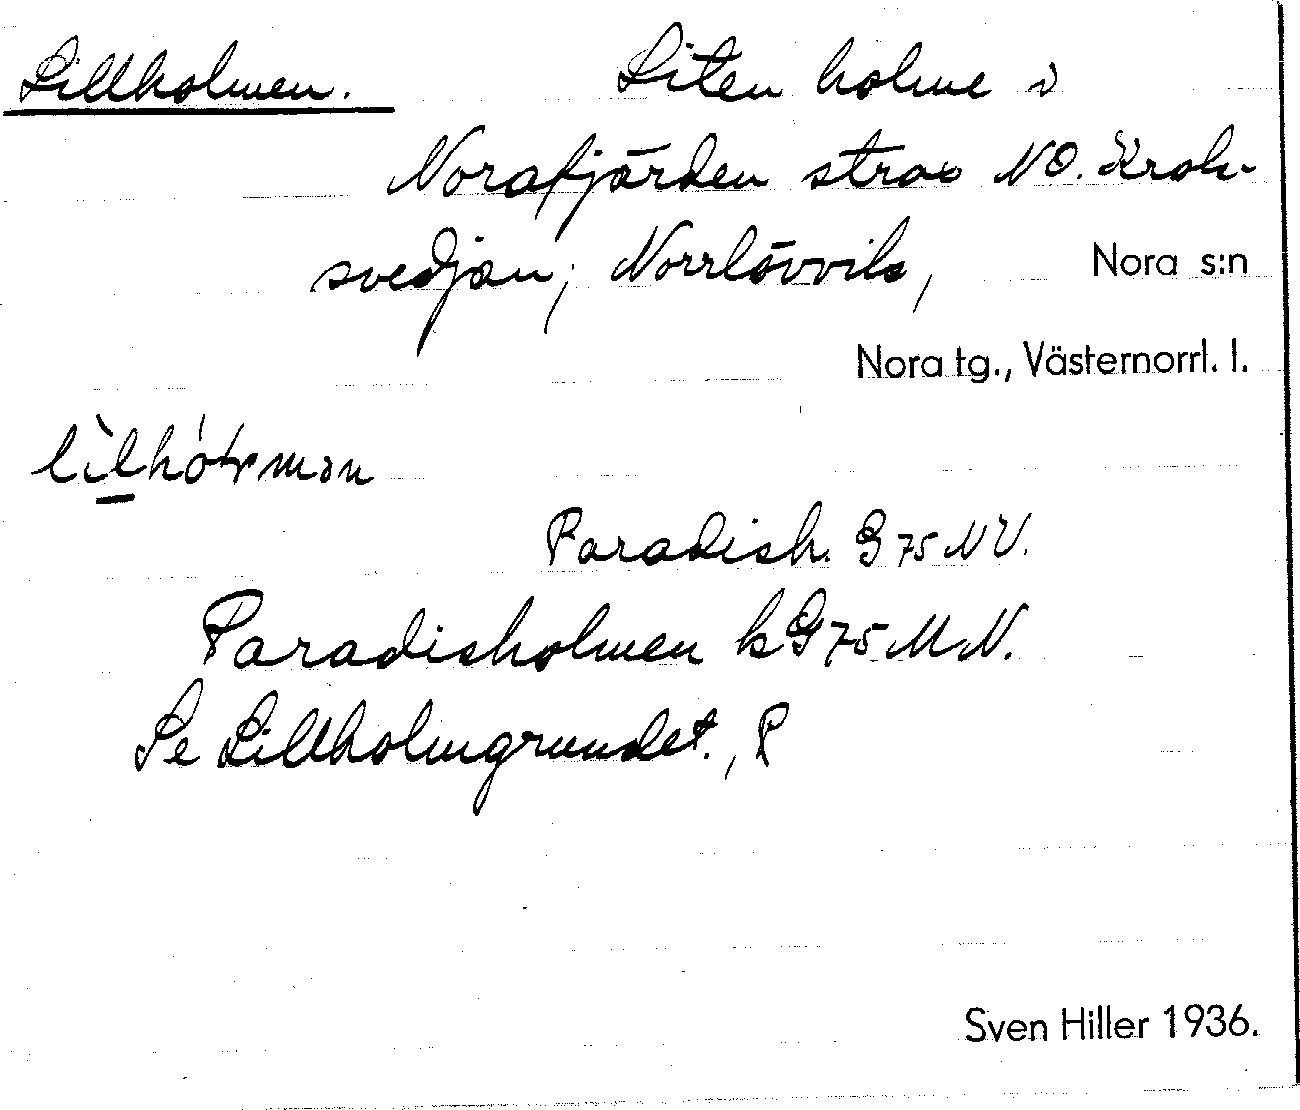 Lillholmen. Liten holme i
Norafjärden strax NO. Krok-
svedjan; Norrlövvik,
Nora s:n
Nora tg., Västernorrl. l.
Paradish. G 75 NV.
Paradisholmen kG 75 M.N.
Se Lillholmgrundet., P
Sven Hiller 1936.